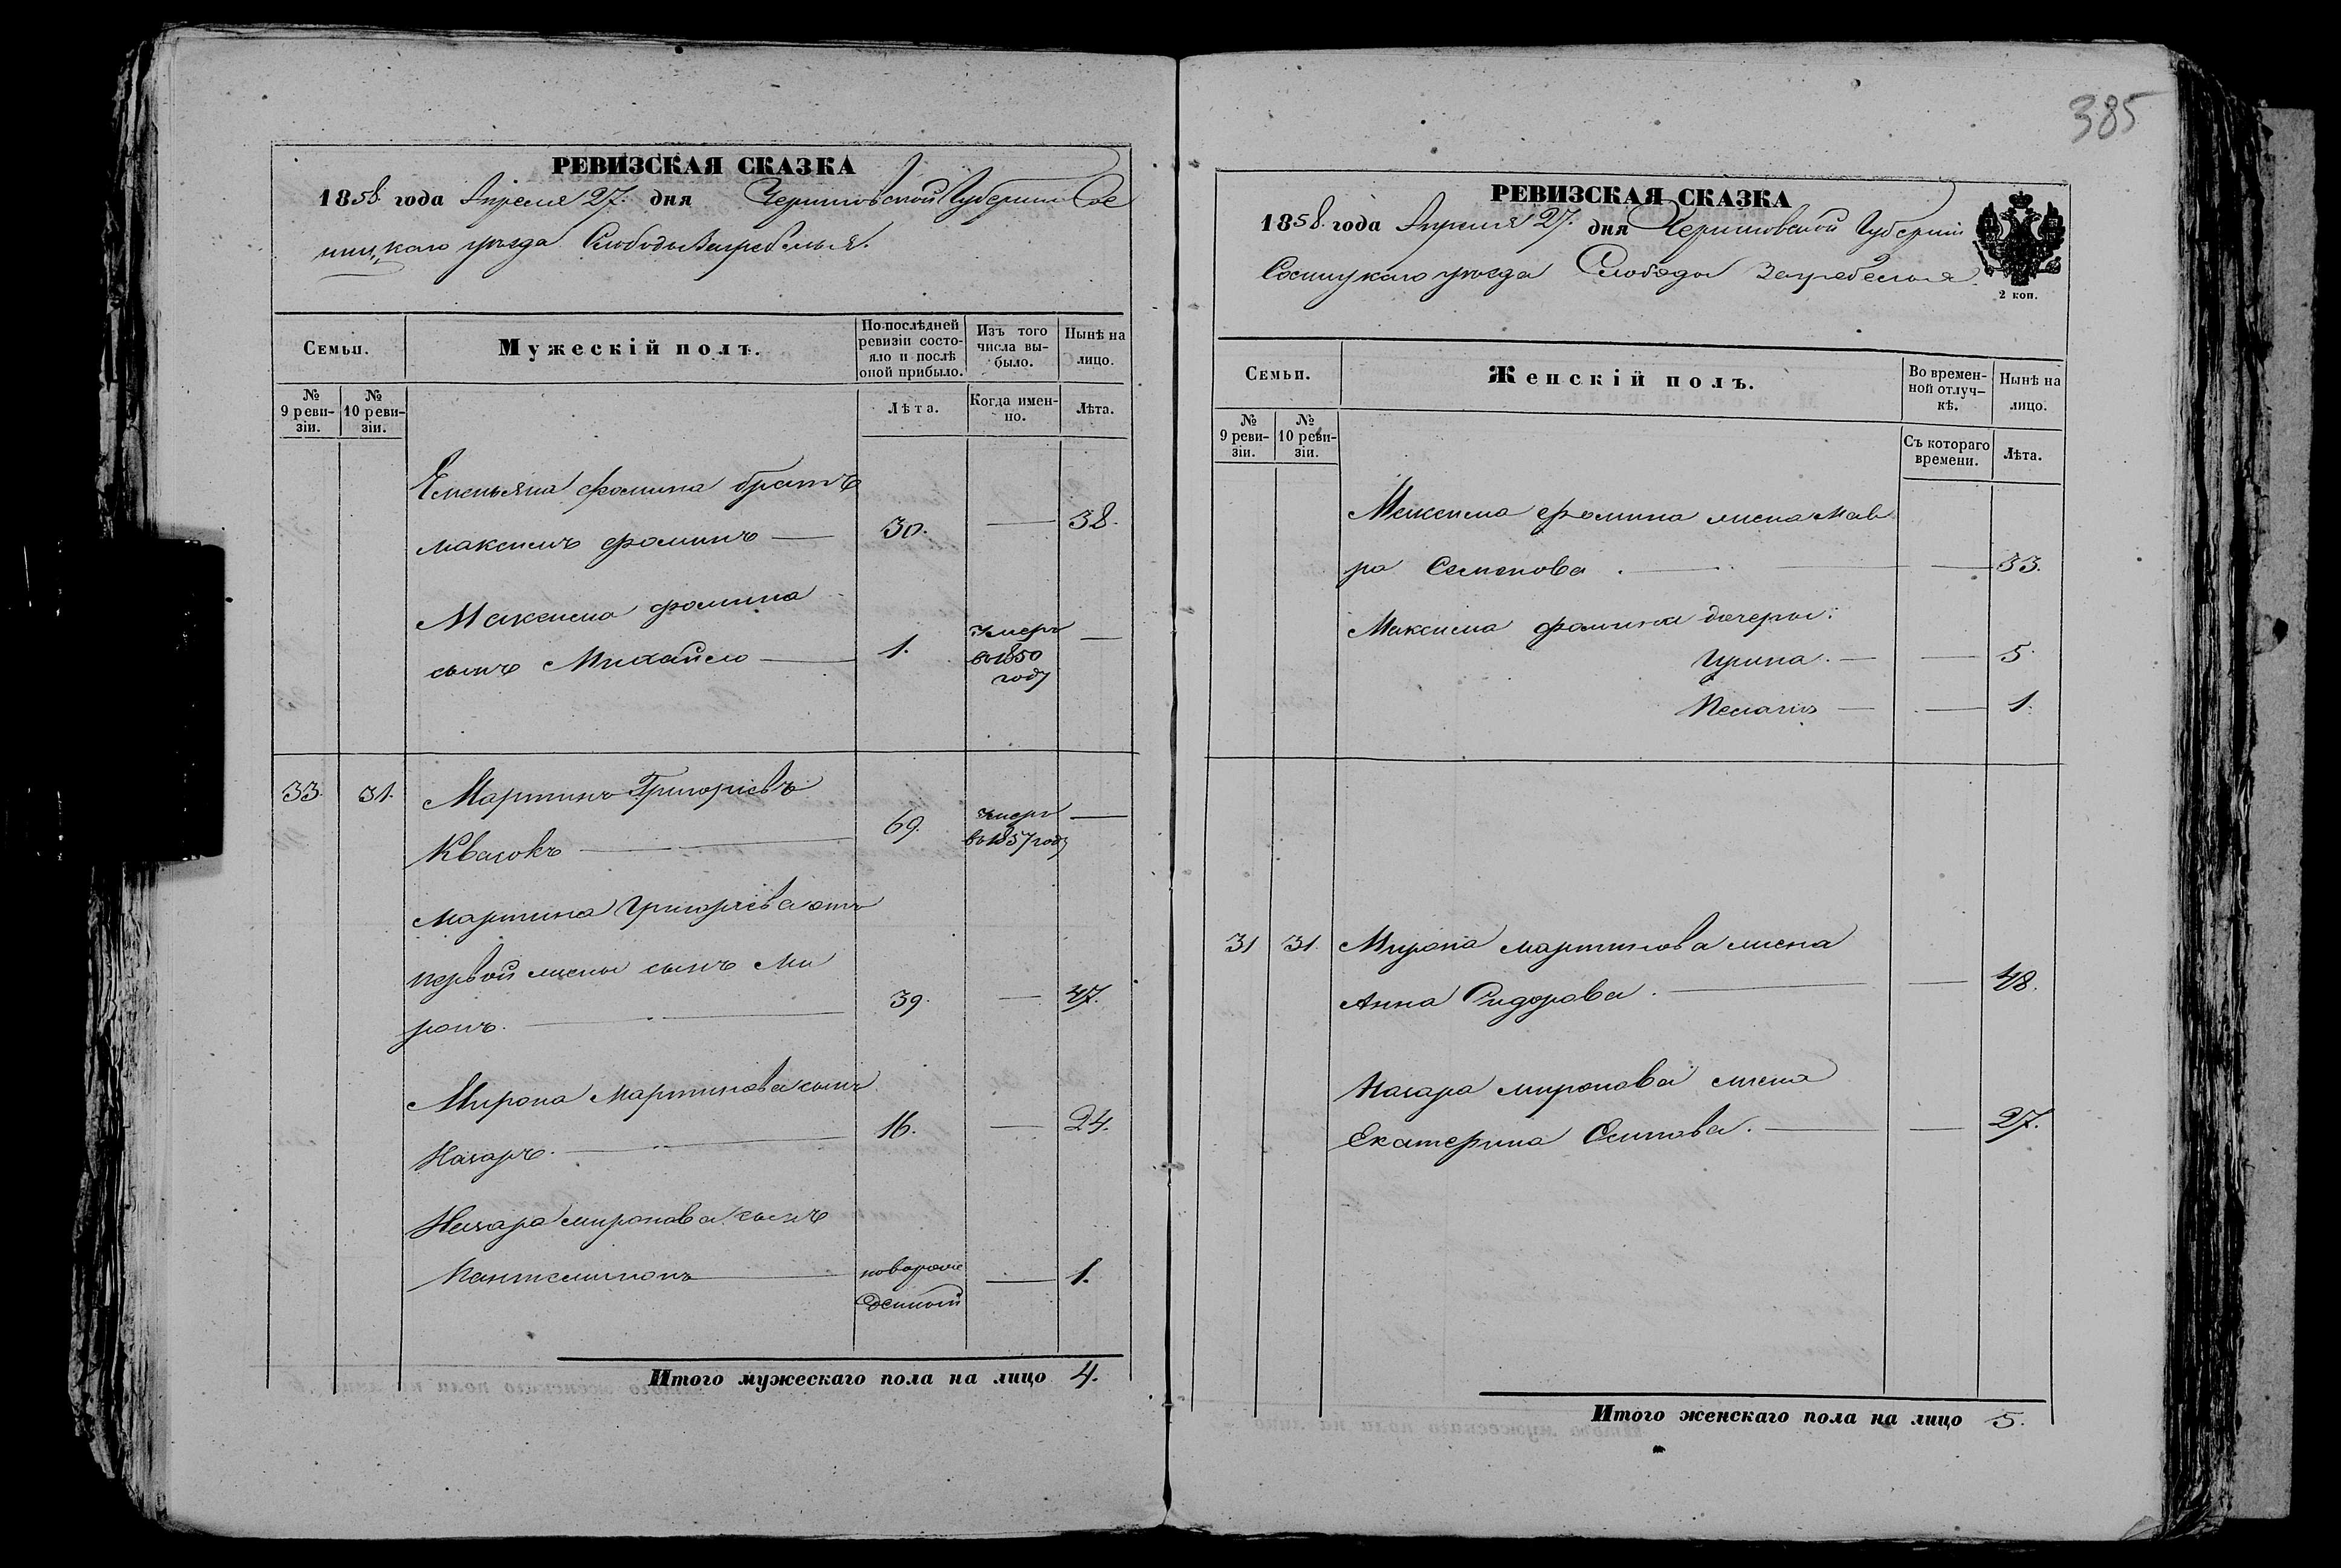 385
РЕВИЗСКАЯ СКАЗКА
1858 года Апреля 27. дня Черниговской Губернии Сос
ницкаго уезда Слободы Загребелья.
Семьи.
Мужескій полъ.
По послѣдней ревизіи состояло и послѣ оной прибыло.
Изъ того числа выбыло.
Нынѣ на лицо.
№ 9 ревизіи.
№ 10 ревизіи.
Лѣта.
Когда именно.
Лѣта.
Емельяна Фомина братъ
Максимъ Фоминъ — 30. — 38.
Максима Фомина
сынъ Михайло — 1. Умеръ въ 1850 году —
33. 31. Мартинъ Григорiевъ
Квасокъ — 69. Умеръ въ 1857 году —
Мартина Григорiева отъ
первой жены сынъ Ми
ронъ. — 39. — 47.
Мирона Мартинова сынъ
Назаръ. — 16. — 24.
Назара Миронова сынъ
Пантелимонъ — новорож
денный — 1.
Итого мужескаго пола на лицо 4.
РЕВИЗСКАЯ СКАЗКА
1858 года Апреля 27. дня Черниговской Губернiи
Сосницкаго уезда Слободы Загребелья.
2 коп.
Семьи.
Женскій полъ.
Во временной отлучкѣ.
Нынѣ на лицо.
№ 9 ревизіи.
№ 10 ревизіи.
Съ котораго времени.
Лѣта.
Максима Фомина жена Мав
ра Семенова. — — 33.
Максима Фомина дочеры:
Ирина. — — 5.
Пелагія — — 1.
31 31. Мирона Мартинова жена
Анна Сидорова. — — 48.
Назара Миронова жена
Екатерина Осипова. — — 27.
Итого женскаго пола на лицо 5.